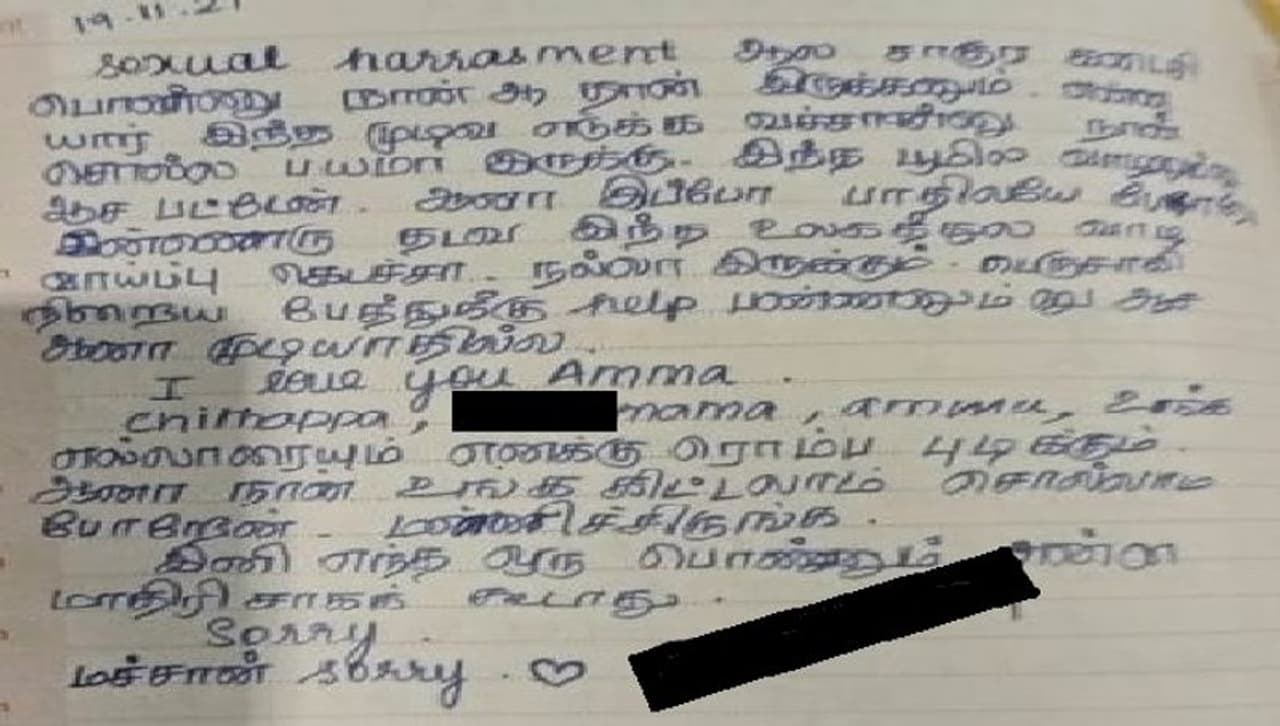 19.11.21
sexual harrasment ஆல சாகுற கடைசி
பொண்ணு நான் ஆ தான் இருக்கணும். என்ன
யார் இந்த முடிவ எடுக்க வச்சான்னு நான்
சொல்ல பயமா இருக்கு. இந்த பூமில
ஆச பட்டேன். ஆனா இப்போ பாதிலயே
இன்னொரு தடவ இந்த உலகத்துல வாழ
வாய்ப்பு கெடச்சா. நல்லா இருக்கும். பெருசாகி
நிறைய பேத்துக்கு help பண்ணணும் னு ஆச
ஆனா முடியாதில்ல.
I love you Amma.
chithappa, mama, ammu, உங்க
எல்லாரையும் எனக்கு ரொம்ப புடிக்கும்.
ஆனா நான் உங்க கிட்டலாம் சொல்லாம
போறேன். மன்னிச்சிருங்க.
இனி எந்த ஒரு பொண்ணும் என்ன
மாதிரி சாகக் கூடாது.
Sorry.
மச்சான் sorry. ♡